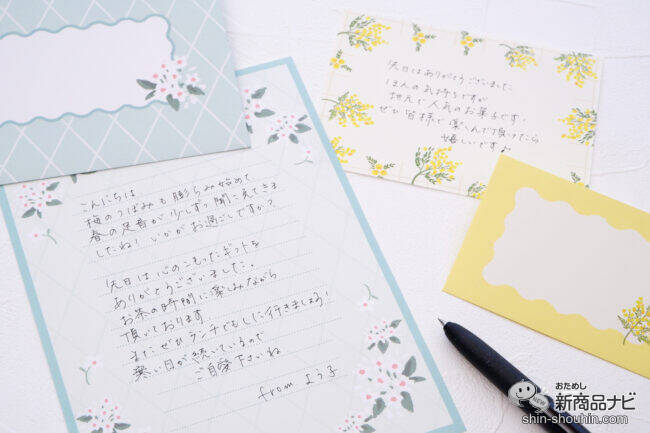 先日はありがとうございました
ほんの気持ちですが
地元で人気のお菓子です。
ぜひ皆様で楽しんで頂けたら
嬉しいです♪
こんにちは
梅のつぼみも膨らみ始めて
春の足音が少しずつ聞こえてきま
したね！いかがお過ごしですか？
先日は心のこもったギフトを
ありがとうございました。
お茶の時間に楽しみながら
頂いております
またぜひランチでもしに行きましょう！
寒い日が続いているので
ご自愛下さいね
from よう子
おためし
新商品ナビ
NEW
shin-shouhin.com